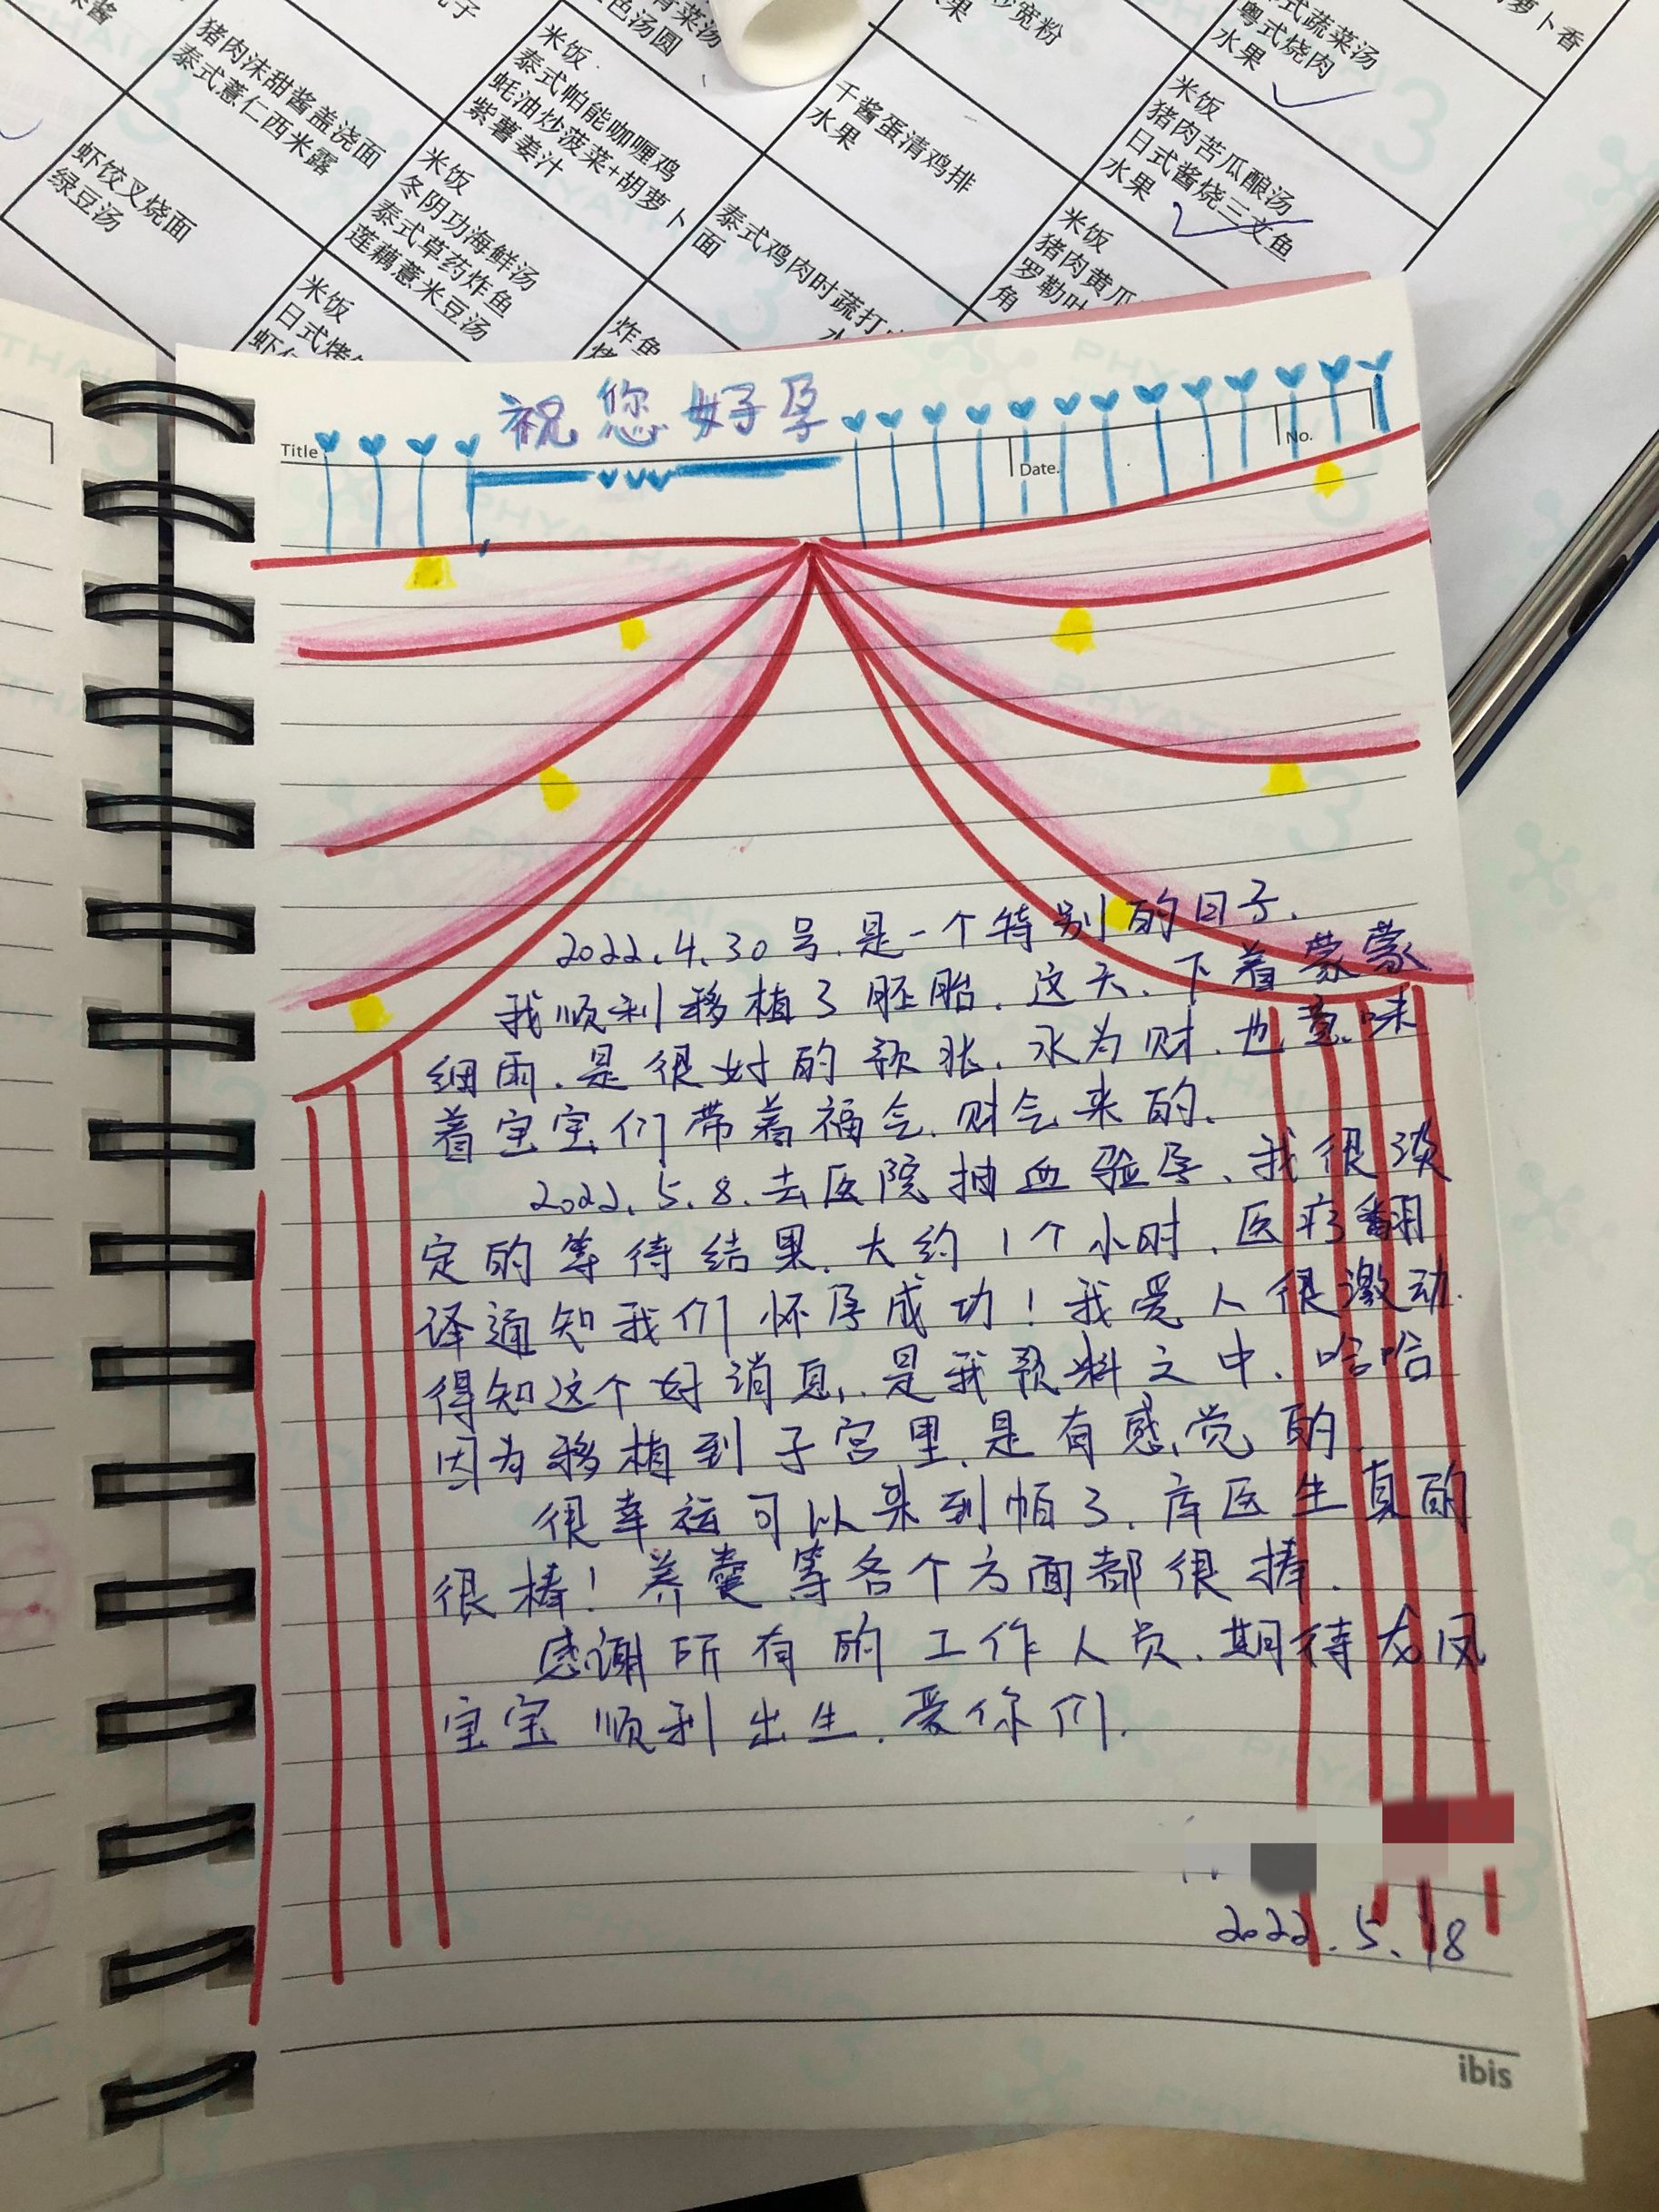 猪肉沫甜酱盖浇面
泰式薏仁西米露
虾饺叉烧面
绿豆汤
米饭
冬阴功海鲜汤
泰式草药炸鱼
莲藕薏米豆汤
米饭
泰式帕能咖喱鸡
蚝油炒菠菜+胡萝卜
紫薯姜汁
米饭
日式烤
炸鱼
色汤圆
青菜汤
宽粉
干酱蛋清鸡排
水果
泰式鸡肉时蔬打
面
式蔬菜汤
粤式烧肉
水果
米饭
猪肉苦瓜酿汤
日式酱烧三文鱼
水果
米饭
猪肉黄瓜
罗勒叶
角
萝卜香
祝您好孕
Title
Date.
No.
2022.4.30号.是一个特别的日子.
我顺利移植了胚胎.这天.下着蒙蒙
细雨.是很好的预兆.水为财.也意味
着宝宝们带着福气.财气来的.
2022.5.8.去医院抽血验孕.我很淡
定的等待结果.大约1个小时.医疗翻
译通知我们怀孕成功!我爱人很激动.
得知这个好消息.是我预料之中.哈哈
因为移植到子宫里.是有感觉的.
很幸运可以来到帕3.库医生真的
很棒!养囊等各个方面都很棒.
感谢所有的工作人员.期待龙凤
宝宝顺利出生.爱你们.
2022.5.18
ibis